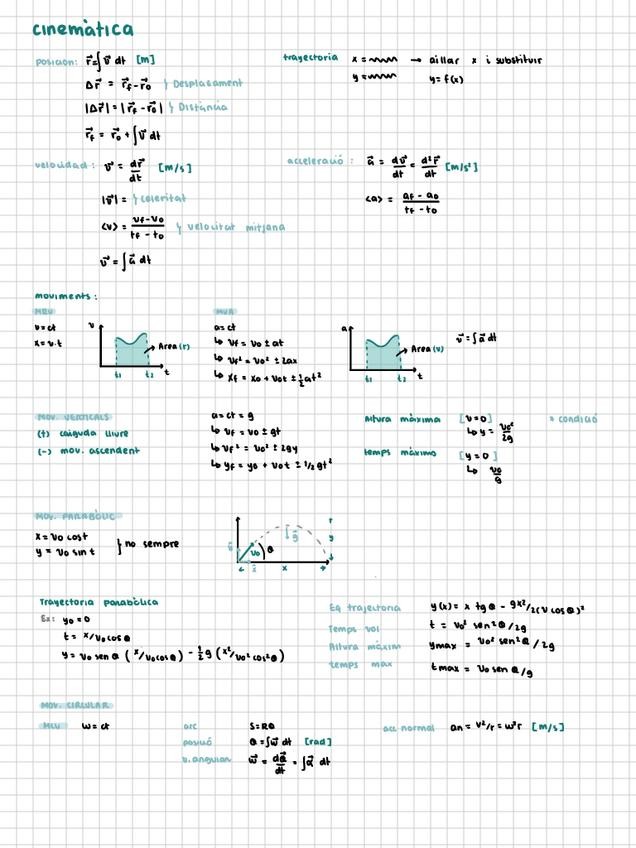 cinemàtica
posicion: r⃗=∫v⃗ dt [m]
Δr⃗ = r⃗f-r⃗0 } Desplaçament
|Δr⃗| = |r⃗f-r⃗0| } Distància
r⃗f = r⃗0 + ∫v⃗ dt
trayectoria x = → aillar x i substituir
y = y=f(x)
velocidad: v⃗ = dr⃗/dt [m/s]
|v⃗| = } celeritat
⟨v⟩ = vf-v0/tf-t0 } velocitat mitjana
v⃗ = ∫a⃗ dt
acceleració: a⃗ = dv⃗/dt = d²r⃗/dt [m/s²]
⟨a⟩ = af-a0/tf-t0
moviments:
MRU
v=ct
x=v·t
v
Area (r)
t1 t2 t
MUA
a=ct
↳ vf = v0 ± at
↳ vf² = v0² ± 2ax
↳ xf = x0 + v0t ± ½at²
a
Area (v)
t1 t2 t
v⃗=∫a⃗ dt
MOV. VERTICALS
(+) caiguda lliure
(-) mov. ascendent
a=ct=g
↳ vf = v0 ± gt
↳ vf² = v0² ± 2gy
↳ yf = y0 + v0t ± 1/2 gt²
Altura màxima [v=0] = condició
↳ y = v0²/2g
temps màximo [y=0]
↳ v0/g
MOV. PARABÒLIC
x = v0 cost
y = v0 sin t
} no sempre
v0 θ g⃗
x
y
Trayectoria parabòlica
Ex: y0=0
t = x/v0cosθ
y = v0 senθ (x/v0cosθ) - ½g (x²/v0²cos²θ)
Eq trajectoria y(x) = x tgθ - gx²/2(v0cosθ)²
Temps vol t = v0² sen²θ/2g
Altura màxim ymax = v0² sen²θ/2g
temps max tmax = v0 senθ/g
MOV. CIRCULAR
MCU w=ct
arc S=Rθ
posició θ=∫w⃗ dt [rad]
v.angular w⃗ = dθ⃗/dt = ∫α⃗ dt
acc normal an = v²/r = w²r [m/s]